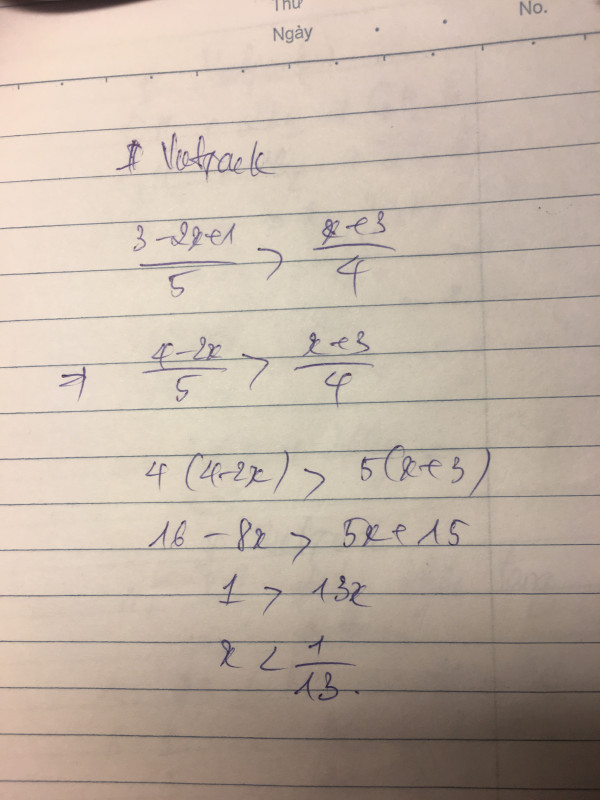 Thứ
Ngày
No.
\frac{3-2x+1}{5} > \frac{x+3}{4}
⇒ \frac{4-2x}{5} > \frac{x+3}{4}
4(4-2x) > 5(x+3)
16 - 8x > 5x + 15
1 > 13x
x < \frac{1}{13}.